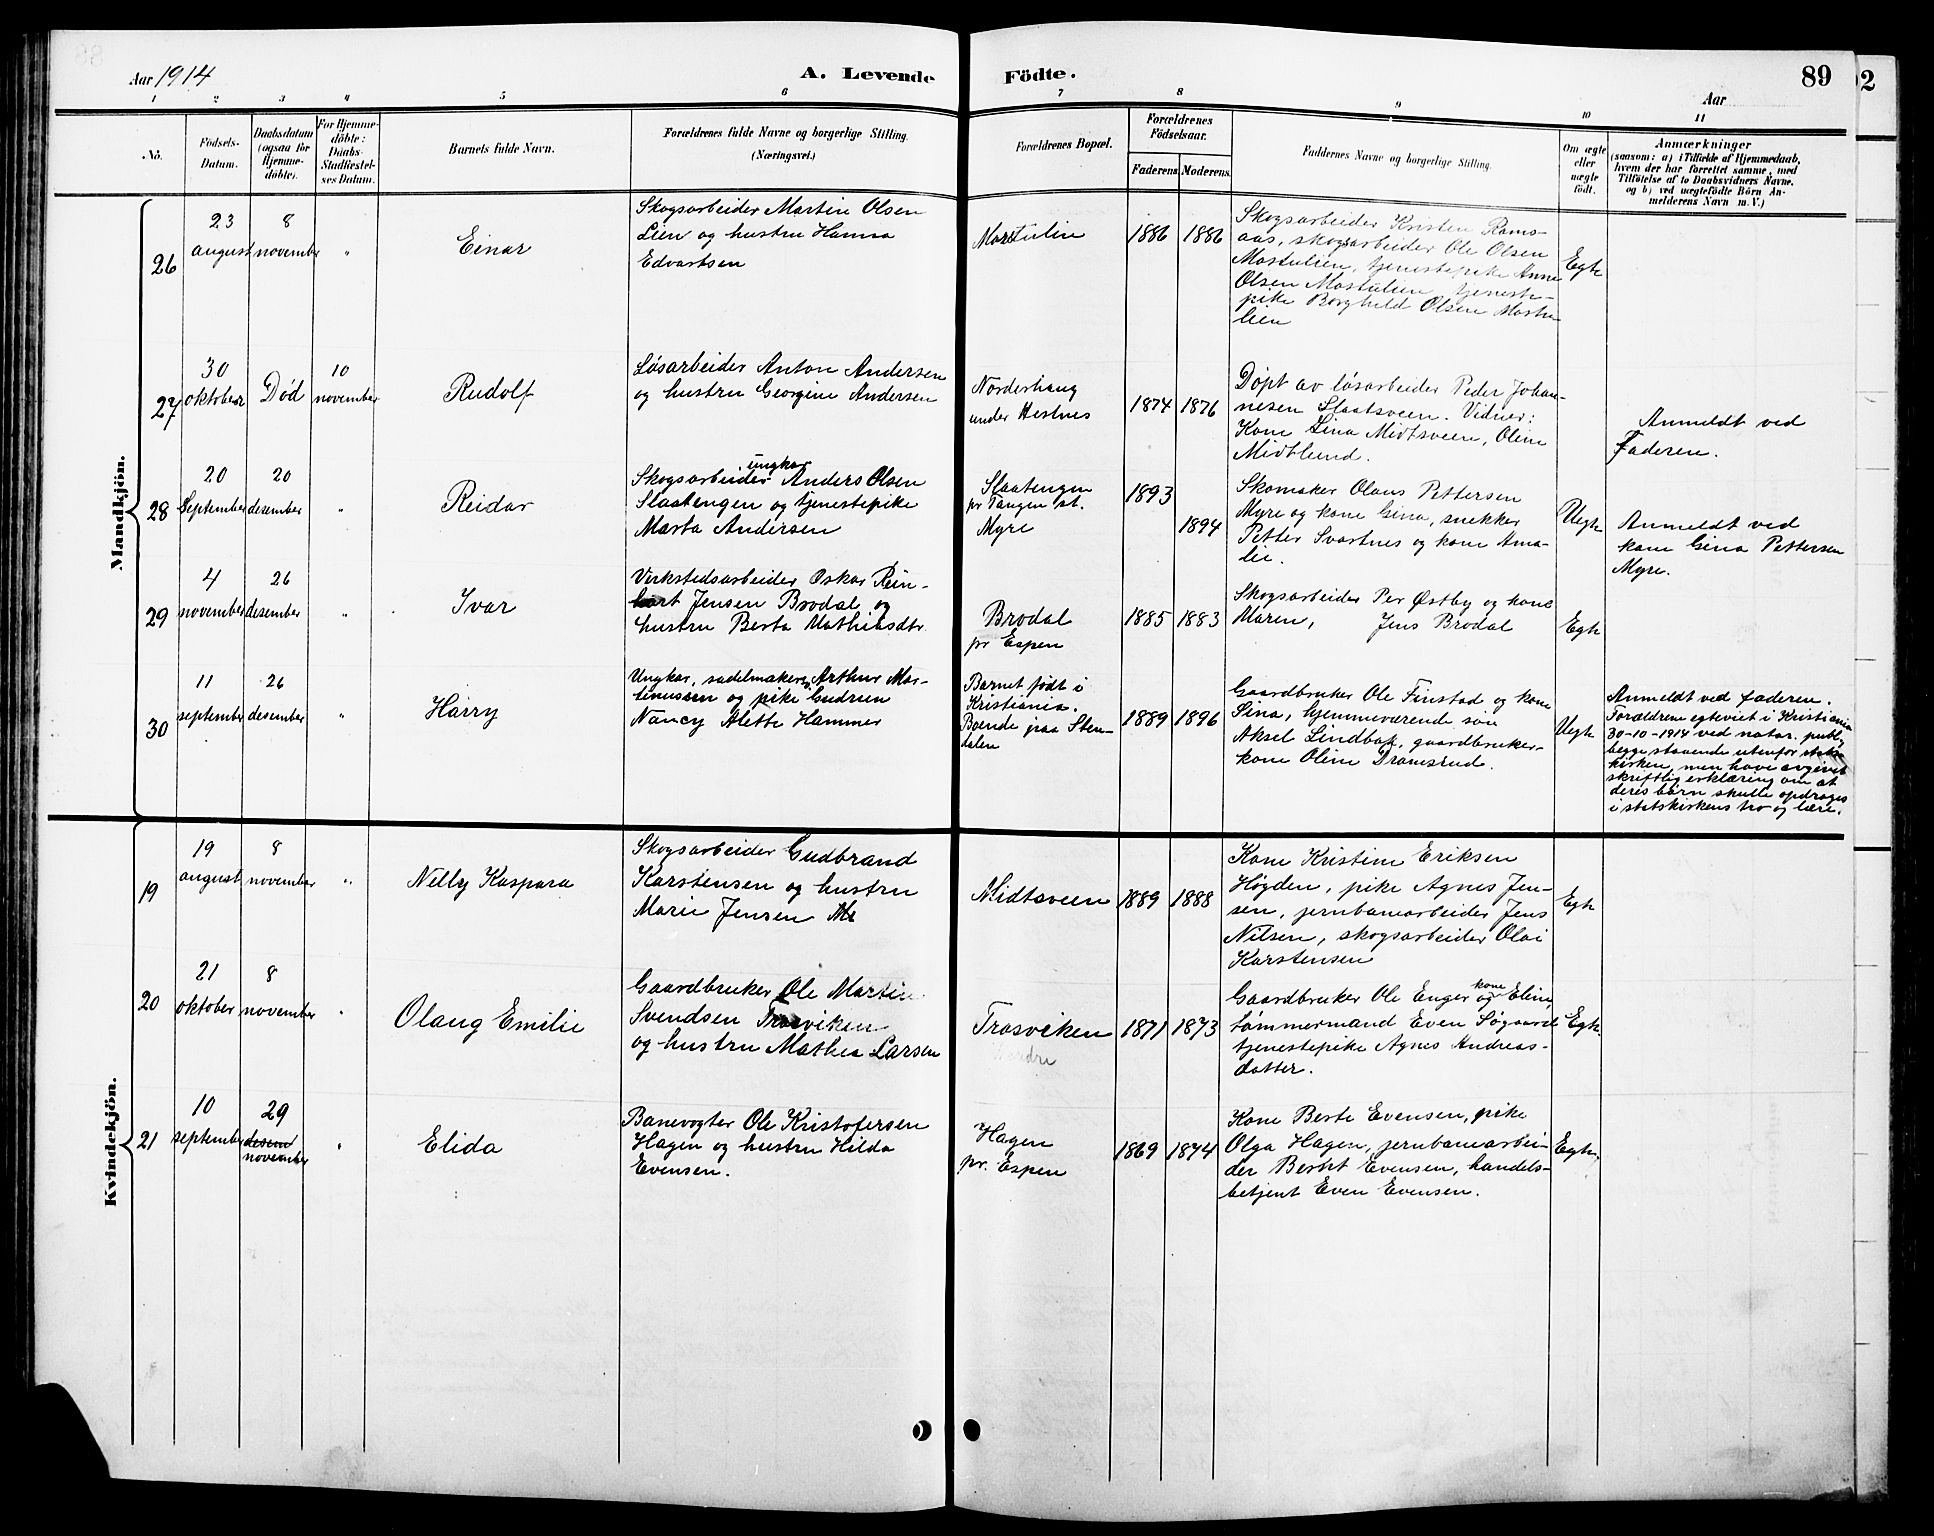 Aar 1914
A. Levende
Födte.
89
Aar
1 2 3 4 5 6 7 8 9 10 11
No.
Födsels-
Datum.
Daabsdatum
(ogsaa for
Hjemme-
döbte).
For Hjemme-
döbte:
Daabs-
Stadfæstel-
ses Datum.
Barnets fulde Navn.
Forældrenes fulde Navne og borgerlige Stilling.
(Næringsvei.)
Forældrenes Bopæl.
Forældrenes
Födselsaar.
Faderens
Moderens
Faddernes Navne og borgerlige Stilling.
Om ægte
eller
uægte
født.
Anmærkninger
(saasom: a) i Tilfælde af Hjemmedaab,
hvem der har forrettet samme, med
Tilföielse af to Daabsvidners Navne,
og b) ved uægtefödte Börn An-
melderens Navn m. V.)
Mandkjön.
26
23
august
8
november
"
Einar
Skogsarbeider Martin Olsen
Lien og hustru Hanna
Edvartsen
Mastulien
1886
1886
Skogsarbeider Kristen Rams-
aas, skogsarbeider Ole Olsen
Mastulien, tjenestepike Anne
Olsen Mastulien, tjeneste-
pike Borghild Olsen Mastu-
lien
Egte
27
30
oktober
Død
10
november
Rudolf
Løsarbeider Anton Andersen
og hustru Georgine Andersen
Norderhaug
under Hestnes
1874
1876
Døpt av løsarbeider Peder Johan-
nesen Slaatsveen. Vidner:
Kone Lina Midtsveen, Oline
Midtlund.
Anmeldt ved
Faderen.
28
20
September
20
desember
"
Reidar
ungkar
Skogsarbeider Anders Olsen
Slaatengen og tjenestepike
Marta Andersen
Slaatengen
pr Tangen st.
Myre
1893
1894
Skomaker Olaus Pettersen
Myre og kone Gina, snekker
Petter Svartnes og kone Ama-
lie.
Uegte
Anmeldt ved
kone Gina Pettersen
Myre.
29
4
november
26
desember
"
Ivar
Verkstedsarbeider Oskar Rein-
hart Jensen Brodal og
hustru Berta Mathiasdtr.
Brodal
pr Espen
1885
1883
Skogsarbeider Per Østby og kone
Maren, Jens Brodal
Egte
30
11
september
26
desember
"
Harry
Ungkar, sadelmaker Arthur Mar-
tinussen og pike Gudrun
Nancy Alette Hammer
Barnet født i
Kristiania.
Boende paa Sten-
dalen
1889
1896
Gaardbruker Ole Finstad og kone
Sina, hjemmeværende søn
Aksel Lindbak, gaardbruker-
kone Oline Dramsrud.
Uegte
Anmeldt ved faderen.
Forældrene egteviet i Kristiania
30-10-1914 ved notar. publ,
begge staaende utenfor stats
kirken, men have avgivet
skriftlig erklæring om at
deres børn skulle opdrages
i statskirkens tro og lære.
Kvindekjön.
19
19
august
8
november
"
Nelly Kaspara
Skogsarbeider Gudbrand
Karstensen og hustru
Marie Jensen
Midtsveen
1889
1888
Kone Kristine Eriksen
Høgden, pike Agnes Jen-
sen, jernbanearbeider Jens
Nilsen, skogsarbeider Olai
Karstensen
Egte
20
21
oktober
8
november
"
Olaug Emilie
Gaardbruker Ole Martin
Svendsen Trasviken
og hustru Mathea Larsen
Trasviken
1871
1873
kone
Gaardbruker Ole Enger og Eline,
tømmermand Even Søgaard
tjenestepike Agnes Andreas-
datter.
Egte
21
10
september
29
desem
november
"
Elida
Banevogter Ole Kristofersen
Hagen og hustru Hilda
Evensen.
Hagen
pr. Espen
1869
1874
Kone Berte Evensen, pike
Olga Hagen, jernbanearbei-
der Bernt Evensen, handels-
betjent Even Evensen.
Egte